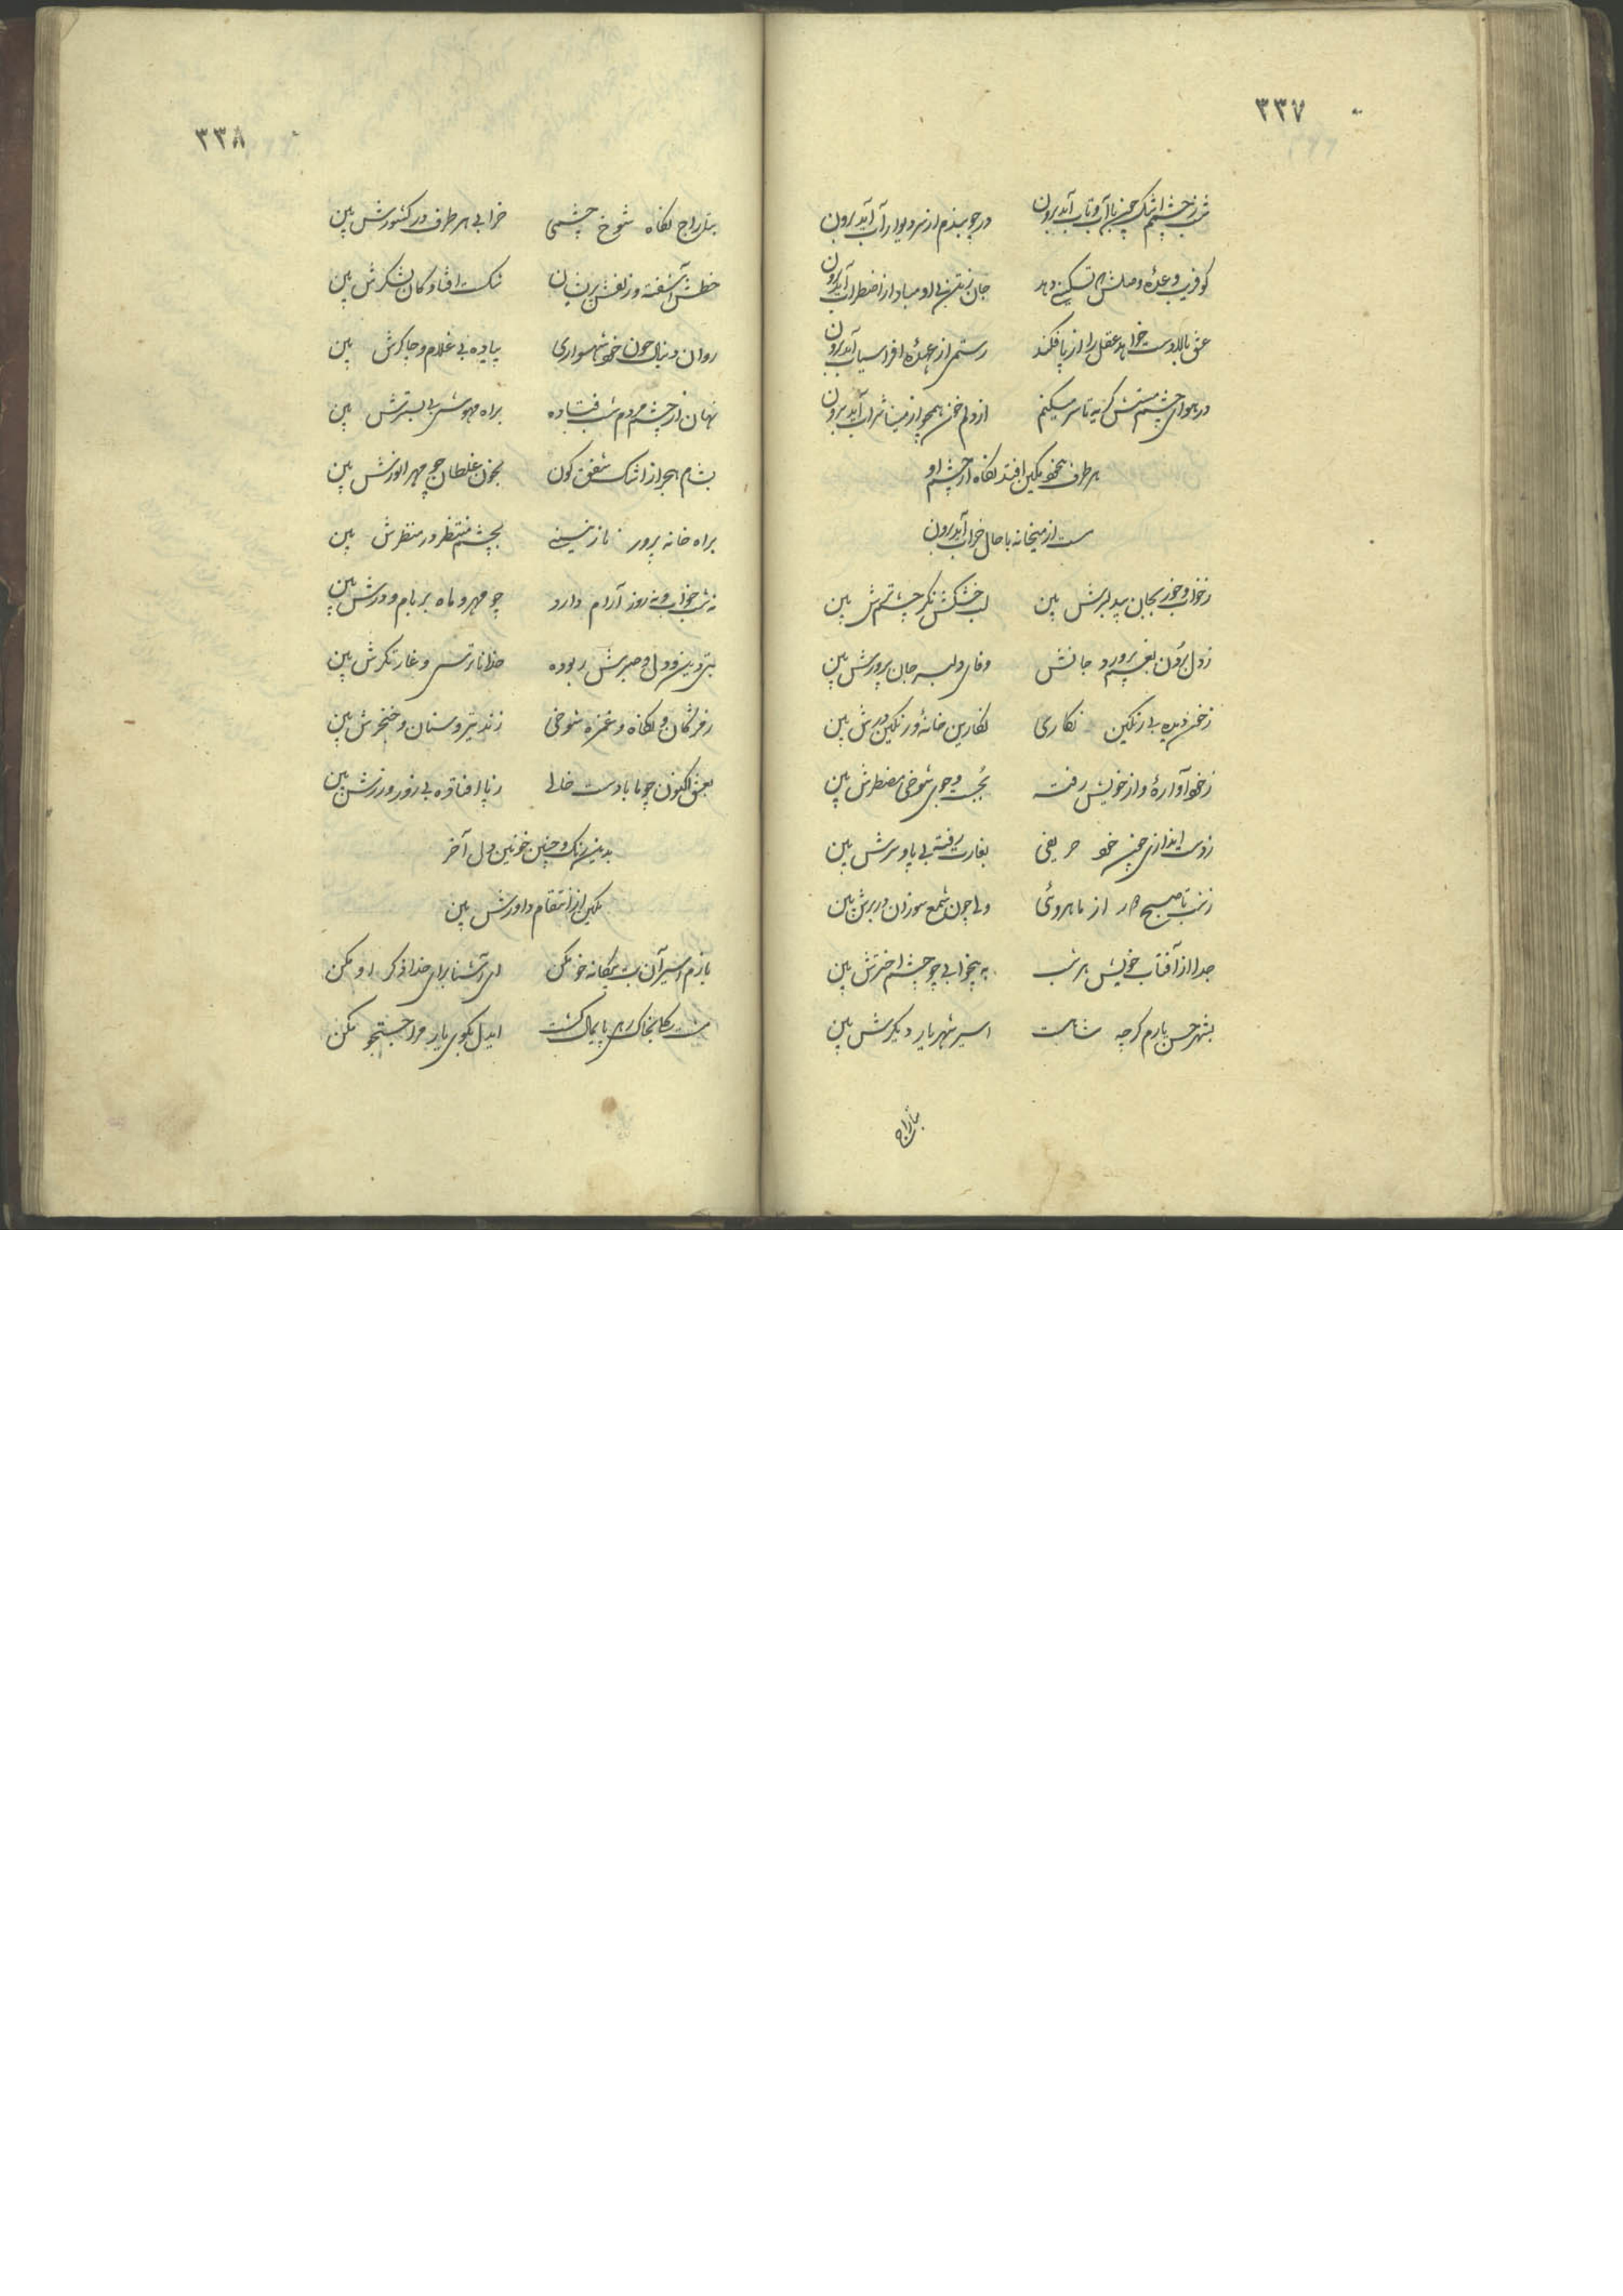 ۳۳۷
شب ز چشمم اشک چون با آب و تاب آید برون در چو بندم از در و دیوار آب آید برون
کو فریب وعدهٔ وصلش که تسکینی دهد جان ز تن بی او مبادا ز اضطراب آید برون
عشق بالادست خواهد عقل را از پا فکند رستمی از عهدهٔ افراسیاب آید برون
در هوای چشم مستش گریه تا سر میکنم از دلم خون همچو از مینا شراب آید برون
هر طرف بیخود نگین افتد نگاه از چشم او
مست از میخانه با حال خراب آید برون
ز خواب و خور بجان بیدلبرش بین لب خشکش نگر چشم ترش بین
ز دل برون بغم پرورد جانش وفای دلبر جان پرورش بین
ز خون دیده بی رنگین نگاری نگارین خانه و رنگین درش بین
ز خود آواره و از خویش رفته بجست و جوی شوخی مضطرش بین
ز دست اندازی چون خود حریفی بغارت رفته بی پا و سرش بین
ز شب تا صبح دور از ماهروئی دلی چون شمع سوزان در برش بین
جدا از آفتاب خویش هر شب به بیخوابی چو چشم اخترش بین
بشهر حسن یارم گرچه شاهست اسیر شهریار دیگرش بین
بتاراج
۳۳۸
بتاراج نگاه شوخ چشمی خرابی هر طرف در کشورش بین
خطش آشفته و زلفش پریشان شکست افتاده گان لشکرش بین
روان دنبال چون خود شهسواری پیاده بی غلام و چاکرش بین
نهان از چشم مردم شب فتاده براه مهوشی بی بسترش بین
بشام هجر از اشک شفق گون بخون غلطان چو مهر انورش بین
براه خانه پرور نازنینی بچشم منتظر در منظرش بین
نه شب خواب و نه روز آرام دارد چو مهر و ماه بر بام و درش بین
بتی دین و دل و صبرش ربوده خدا ناترسی و غارتگرش بین
ز مژگان و نگاه و غمزه شوخی زند تیر و سنان و خنجرش بین
بعشق اکنون چو ما با دست خالی ز پا افتاده بی زور و زرش بین
بدین رنگ و چنین خونین دل آخر
نگین از انتقام داورش بین
یارم اسیر آن بت بیگانه خو مکن ای آشنا برای خدا ذکر او مکن
مشت گلم بخاک رهی پایمال گشت ایدل بکوی یار مرا جستجو مکن